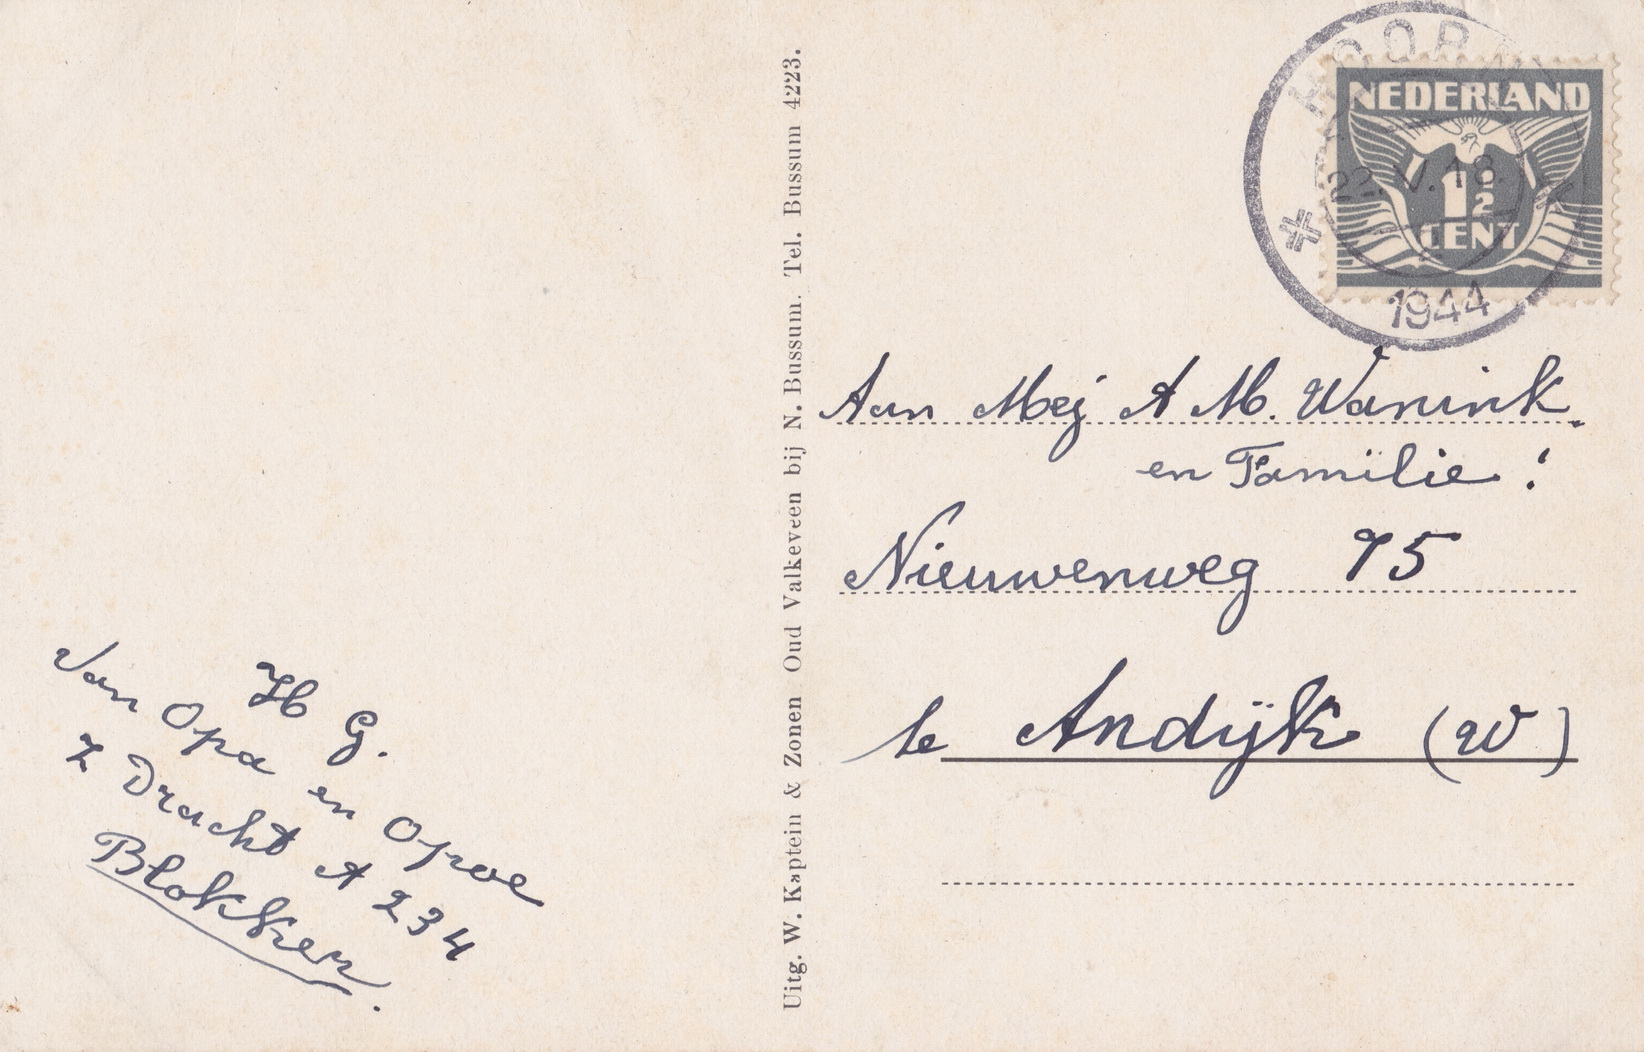 HOORN
22.V.18.
1944
NEDERLAND
1½
CENT
Aan Mej A M. Wanink.
en Familie!
Nieuwenweg 75
te Andijk (W)
H G.
Van Opa en Opoe
Z Dracht A 234
Blokker.
Uitg. W. Kaptein & Zonen Oud Valkeveen bij N. Bussum. Tel. Bussum 4223.